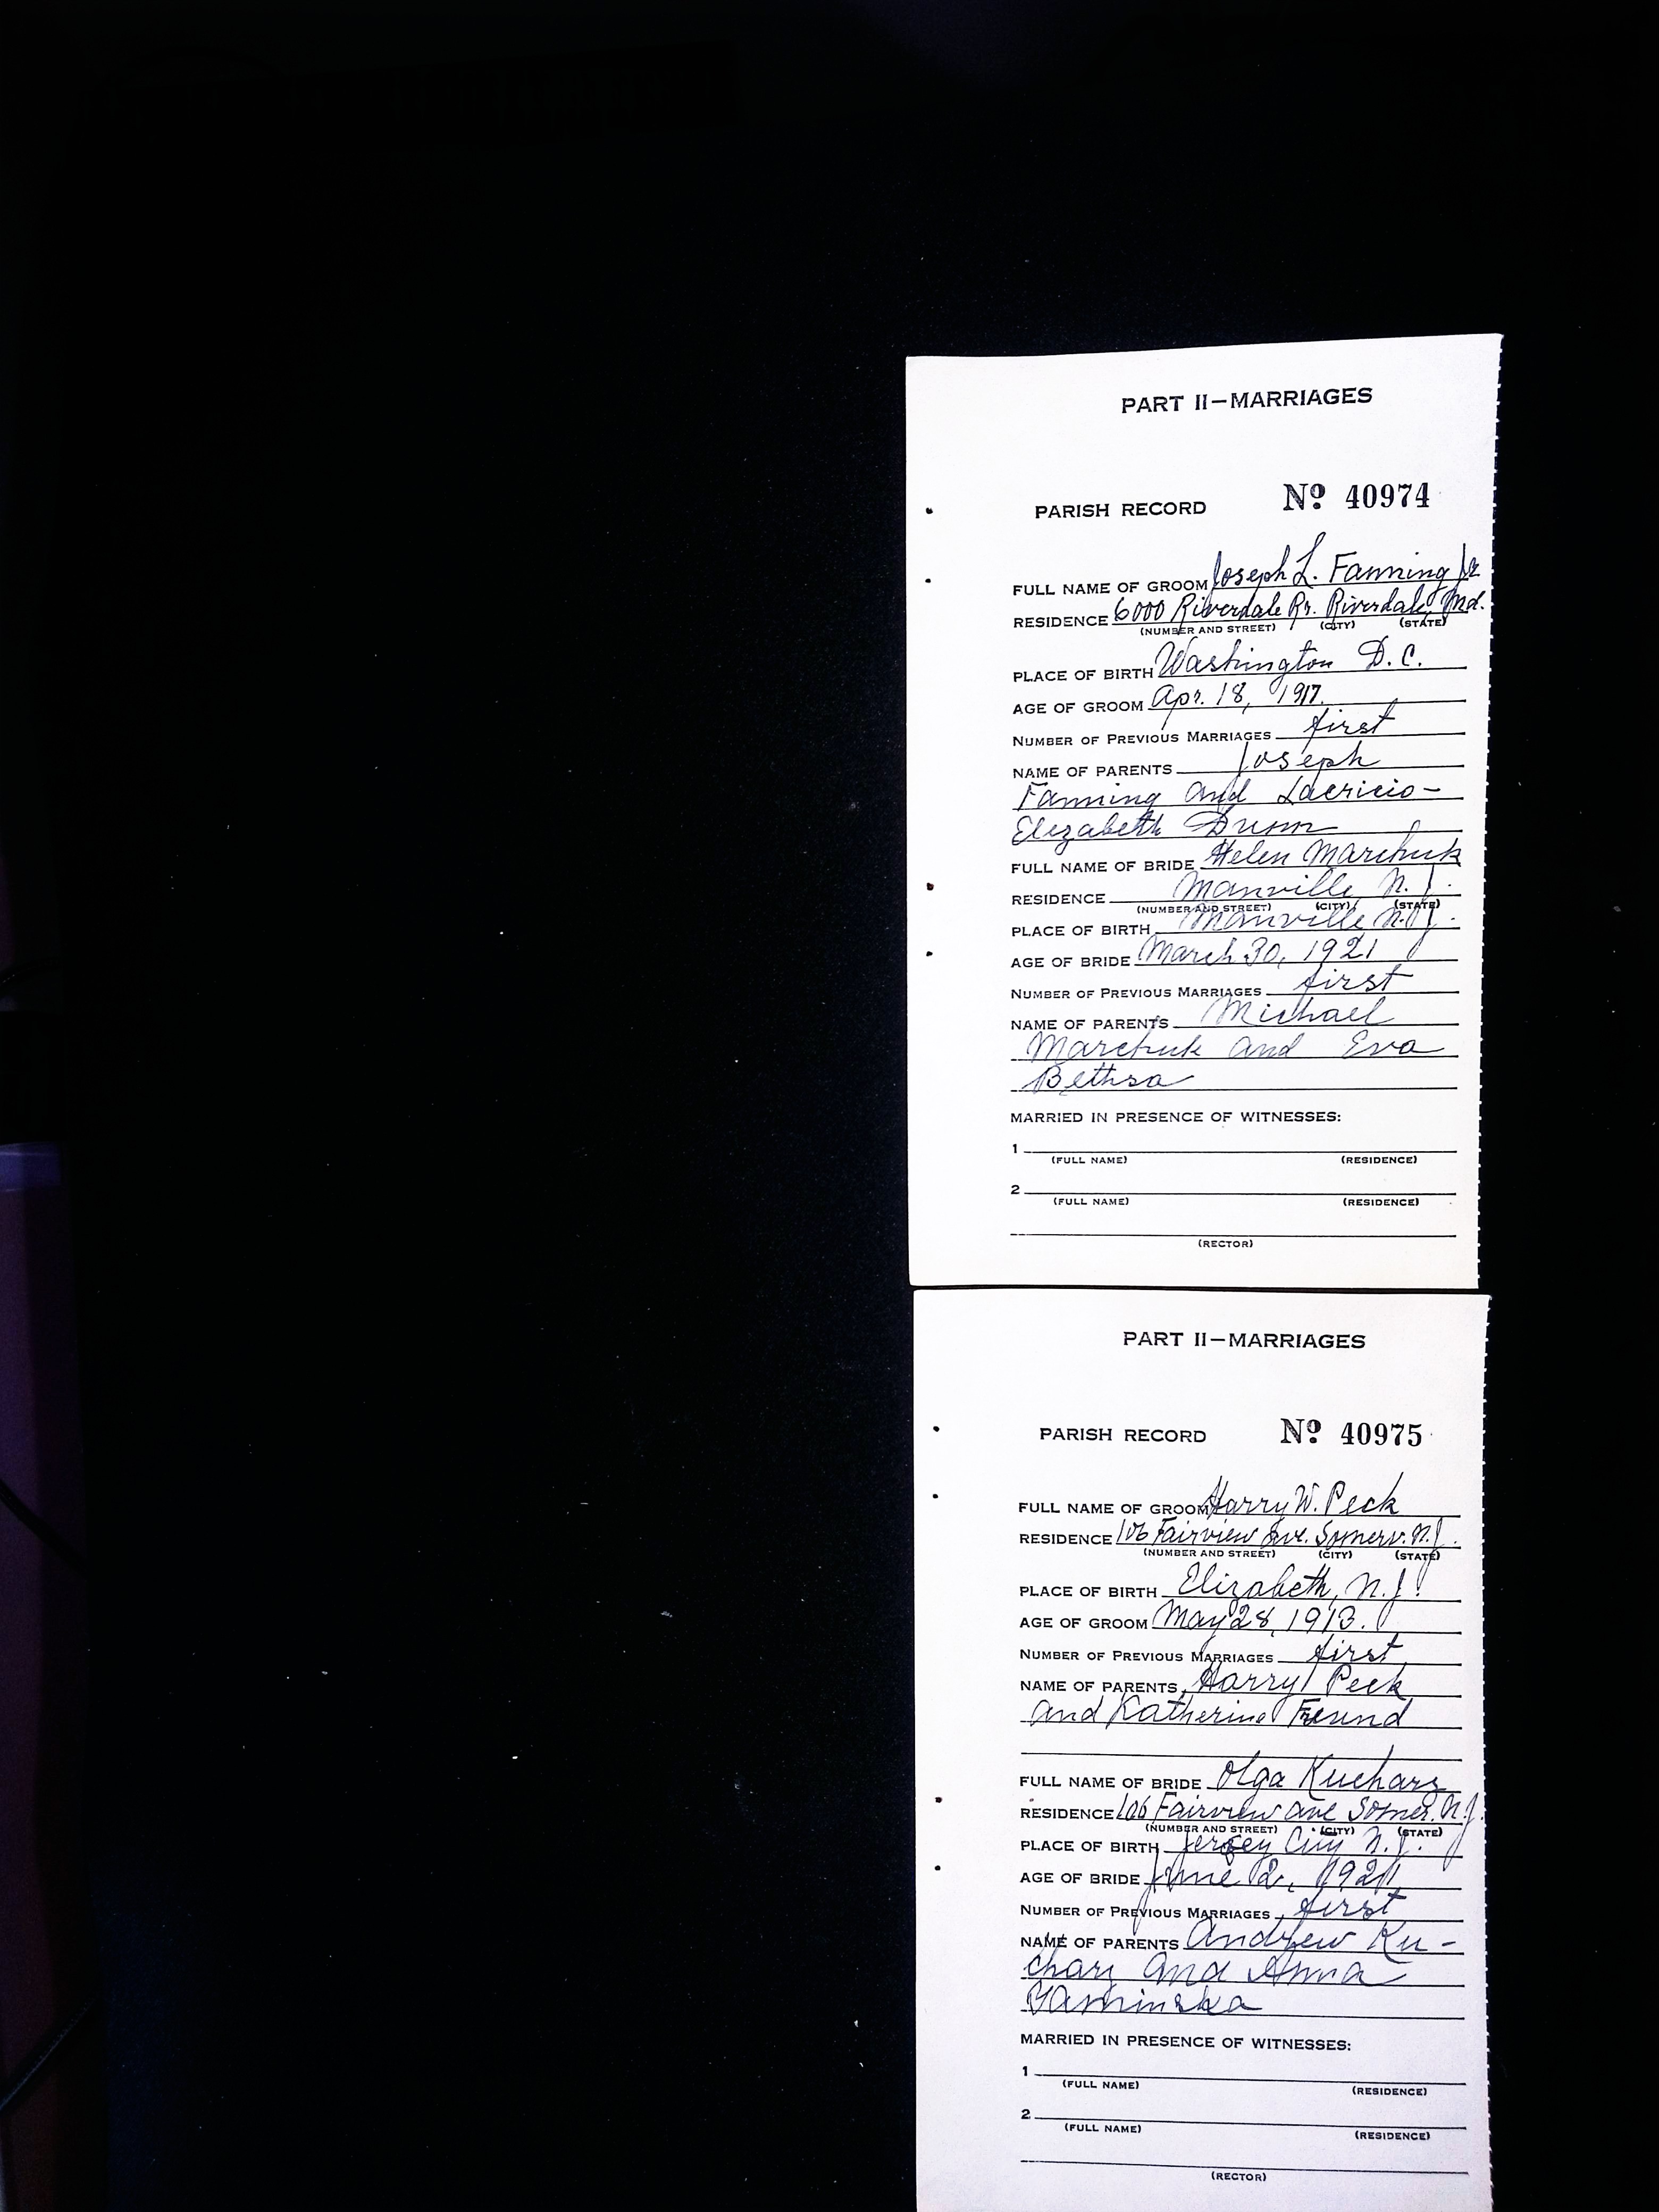 PART II—MARRIAGES
PARISH RECORD Nº 40974
FULL NAME OF GROOM Joseph L. Fanning Jr
RESIDENCE 6000 Riverdale Rr. Riverdale, Md.
(NUMBER AND STREET) (CITY) (STATE)
PLACE OF BIRTH Washington D.C.
AGE OF GROOM Apr. 18, 1917.
NUMBER OF PREVIOUS MARRIAGES first
NAME OF PARENTS Joseph
Fanning and
Elizabeth Dunn
FULL NAME OF BRIDE Helen Marchuk
RESIDENCE Manville, N.J.
(NUMBER AND STREET) (CITY) (STATE)
PLACE OF BIRTH Manville N.J.
AGE OF BRIDE March 30, 1921
NUMBER OF PREVIOUS MARRIAGES first
NAME OF PARENTS Michael
Marchuk and Eva
Bethsa
MARRIED IN PRESENCE OF WITNESSES:
1
(FULL NAME) (RESIDENCE)
2
(FULL NAME) (RESIDENCE)
(RECTOR)
PART II—MARRIAGES
PARISH RECORD Nº 40975
FULL NAME OF GROOM Harry W. Peck
RESIDENCE 106 Fairview Ave. Somerv. N.J.
(NUMBER AND STREET) (CITY) (STATE)
PLACE OF BIRTH Elizabeth, N.J.
AGE OF GROOM May 28, 1913.
NUMBER OF PREVIOUS MARRIAGES first
NAME OF PARENTS Harry Peck
and Katherine Freund
FULL NAME OF BRIDE Olga Kuchary
RESIDENCE 106 Fairview ave Somer. N.J.
(NUMBER AND STREET) (CITY) (STATE)
PLACE OF BIRTH Jersey City N.J.
AGE OF BRIDE June 2, 1921
NUMBER OF PREVIOUS MARRIAGES first
NAME OF PARENTS Andrew Ku-
chary and Anna
MARRIED IN PRESENCE OF WITNESSES:
1
(FULL NAME) (RESIDENCE)
2
(FULL NAME) (RESIDENCE)
(RECTOR)